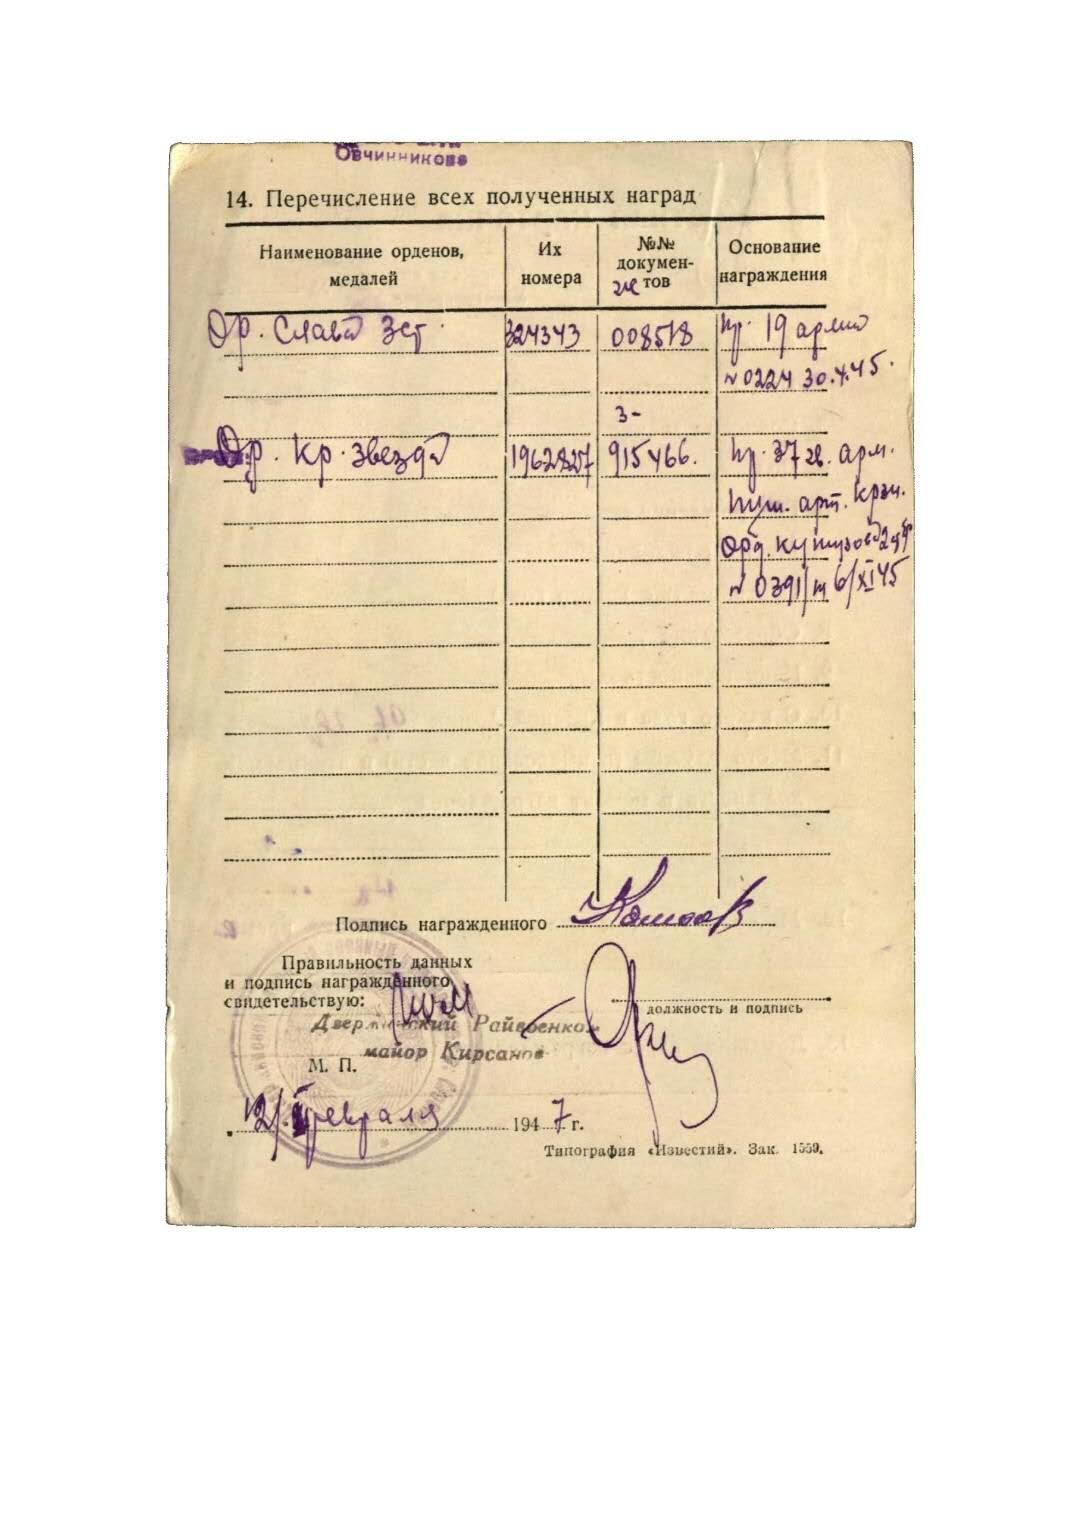 Овчинникова
14. Перечисление всех полученных наград
Наименование орденов,
медалей
Их
номера
№№
докумен-
тов
Основание
награждения
Ор. Слава 3 ст. 324343 008578 Пр. 19 армии
№ 0224 30.4.45.
3-
Ор. Кр. Звезда 1962827 915466. Пр. 37 гв. арм.
пуш. арт. Крзн.
Орд. Кутузова 2
№ 0391/н 6/XI 45
Подпись награжденного
Правильность данных
и подпись награжденного
свидетельствую:
должность и подпись
Дзержинский Райвоенком
майор Кирсанов
М. П.
12/февраля 1947 г.
Типография «Известий». Зак. 1559.